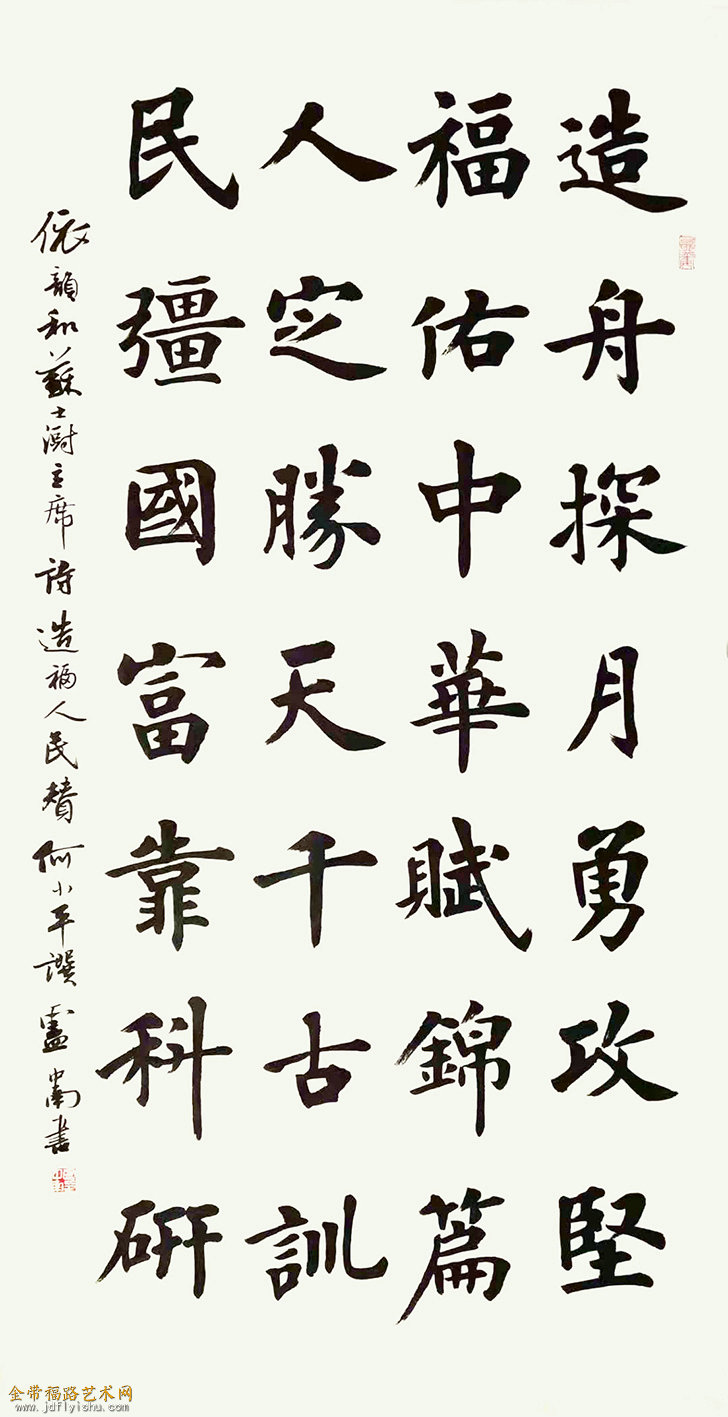 造舟探月勇攻堅
福佑中華賦錦篇
人定勝天千古訓
民彊國富靠科研
依韻和蘇士澍主席詩造福人民贊何小平撰盧中南書
金带福路艺术网
www.jdflyishu.com